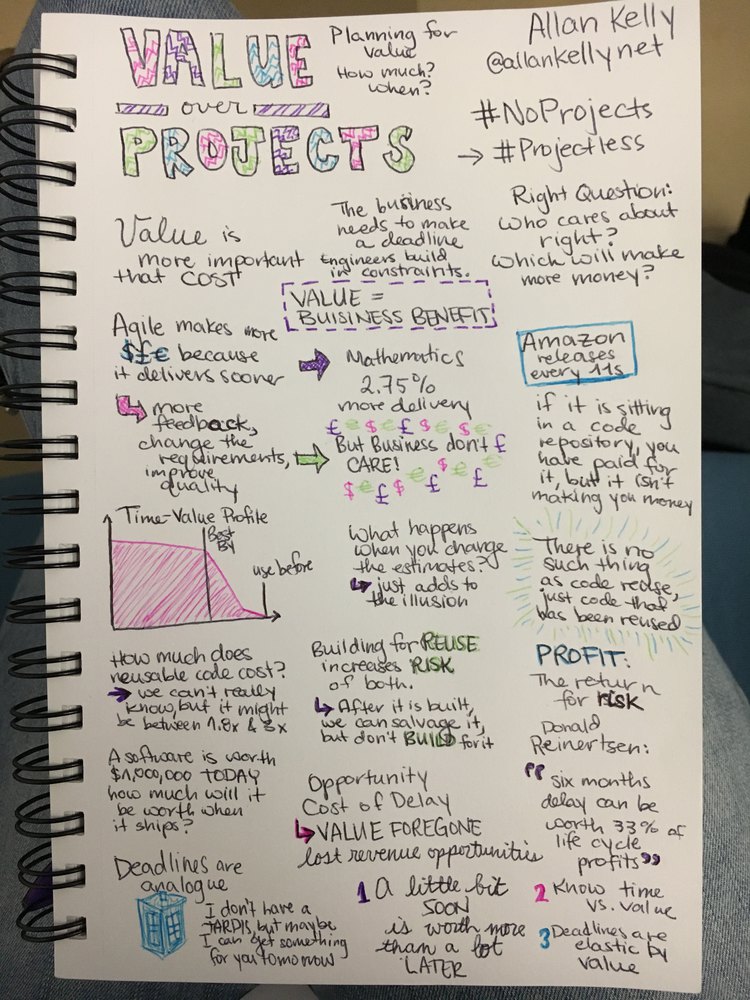 VALUE
over
PROJECTS
Planning for
value
How much?
when?
Allan Kelly
@allankellynet
#NoProjects
→ #Projectless
Value is
more important
that COST
The business
needs to make
a deadline
Engineers build
in constraints.
Right Question:
who cares about
right?
which will make
more money?
VALUE =
BUISINESS BENEFIT
Agile makes more
$£€ because
it delivers sooner
more
feedback,
change the
requirements,
improve
quality
Mathematics
2.75%
more delivery
£ € $ € £ $ € $ €
But Business don't £
CARE!
$ € £ $ € £ $ € £ €
Amazon
releases
every 11s
if it is sitting
in a code
repository, you
have paid for
it, but it isn't
making you money
Time-Value Profile
Best
By
use before
What happens
when you change
the estimates?
just adds to
the illusion
There is no
such thing
as code reuse,
just code that
has been reused
How much does
reusable code cost?
we can't really
know, but it might
be between 1.8x & 3x
Building for REUSE
increases RISK
of both.
After it is built,
we can salvage it,
but don't BUILD for it
PROFIT:
The return
for risk
A software is worth
$1,000,000 TODAY
how much will it
be worth when
it ships?
Opportunity
Cost of Delay
VALUE FOREGONE
lost revenue opportunities
Donald
Reinertsen:
"six months
delay can be
worth 33% of
life cycle
profits"
Deadlines are
analogue
I don't have a
TARDIS, but maybe
I can get something
for you tomorrow
1 A little bit
SOON
is worth more
than a lot
LATER
2 Know time
vs. value
3 Deadlines are
elastic by
value